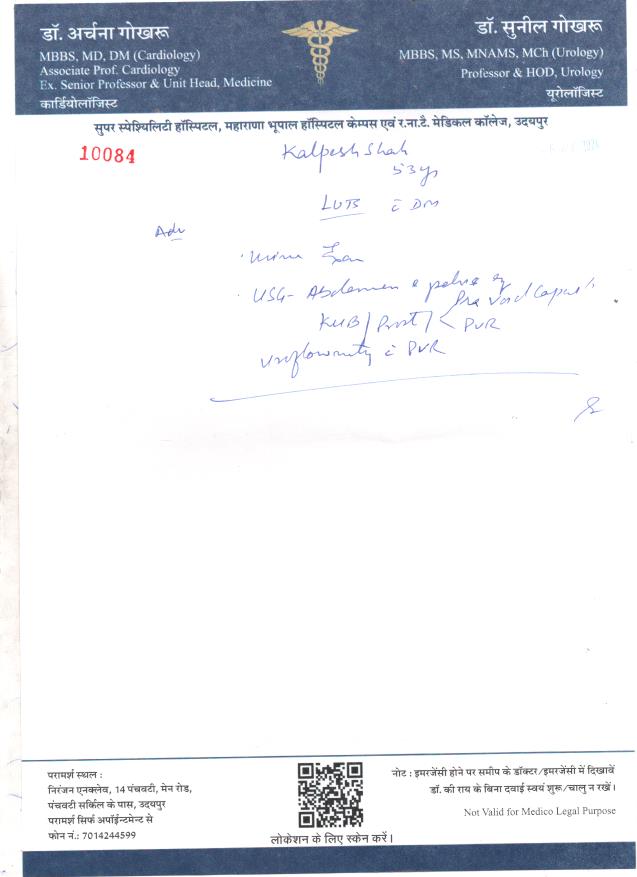 डॉ. अर्चना गोखरू
MBBS, MD, DM (Cardiology)
Associate Prof. Cardiology
Ex. Senior Professor & Unit Head, Medicine
कार्डियोलॉजिस्ट
डॉ. सुनील गोखरू
MBBS, MS, MNAMS, MCh (Urology)
Professor & HOD, Urology
यूरोलॉजिस्ट
सुपर स्पेश्यिलिटी हॉस्पिटल, महाराणा भूपाल हॉस्पिटल केम्पस एवं र.ना.टै. मेडिकल कॉलेज, उदयपुर
10084
Kalpesh Shah
53 yr
LUTS c̄ DM
Adv
Urine
USG- Abdomen & pelvis
Pre Void
KUB/Prost/ < PVR
Uroflowmetry c̄ PVR
परामर्श स्थल :
निरंजन एनक्लेव, 14 पंचवटी, मेन रोड,
पंचवटी सर्किल के पास, उदयपुर
परामर्श सिर्फ अपॉईन्टमेन्ट से
फोन नं.: 7014244599
लोकेशन के लिए स्केन करें।
नोट : इमरजेंसी होने पर समीप के डॉक्टर/इमरजेंसी में दिखावें
डॉ. की राय के बिना दवाई स्वयं शुरू/चालु न रखें।
Not Valid for Medico Legal Purpose